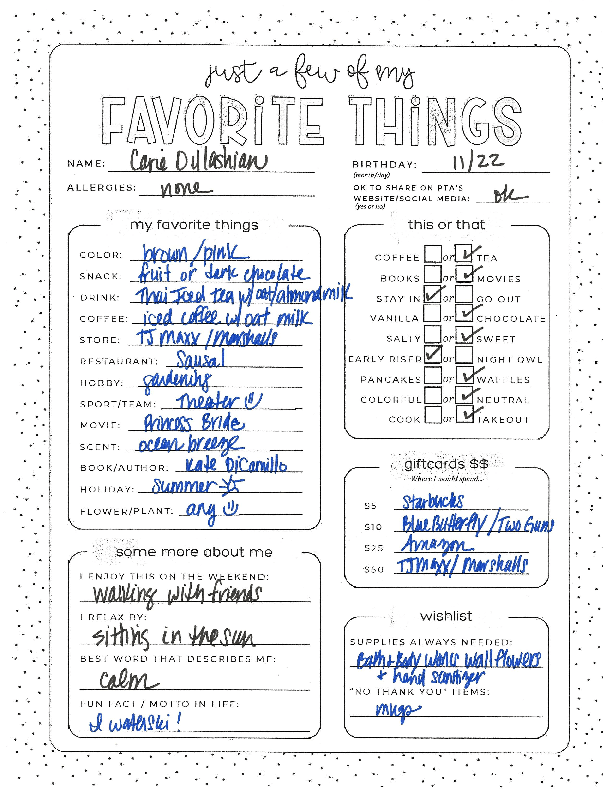 just a few of my
FAVORITE THINGS
NAME: Carie Dulashian
ALLERGIES: none
BIRTHDAY: 11/22
(month/day)
OK TO SHARE ON PTA'S
WEBSITE/SOCIAL MEDIA: ok
(yes or no)
my favorite things
COLOR: brown/pink
SNACK: fruit or dark chocolate
DRINK: Thai Iced tea w/ oat/almond milk
COFFEE: iced coffee w/ oat milk
STORE: TJ Maxx / Marshalls
RESTAURANT: Sausal
HOBBY: gardening
SPORT/TEAM: Theater
MOVIE: Princess Bride
SCENT: ocean breeze
BOOK/AUTHOR: Kate DiCamillo
HOLIDAY: Summer
FLOWER/PLANT: any
this or that
COFFEE or TEA
BOOKS or MOVIES
STAY IN or GO OUT
VANILLA or CHOCOLATE
SALTY or SWEET
EARLY RISER or NIGHT OWL
PANCAKES or WAFFLES
COLORFUL or NEUTRAL
COOK or TAKEOUT
giftcards $$
Where I would spend...
$5 Starbucks
$10 Blue Butterfly / Two Guns
$25 Amazon
$50 TJ Maxx / Marshalls
some more about me
I ENJOY THIS ON THE WEEKEND:
walking with friends
I RELAX BY:
sitting in the sun
BEST WORD THAT DESCRIBES ME:
calm
FUN FACT / MOTTO IN LIFE:
I waterski!
wishlist
SUPPLIES ALWAYS NEEDED:
Bath + Body Works Wallflowers
+ hand sanitizer
"NO THANK YOU" ITEMS:
mugs